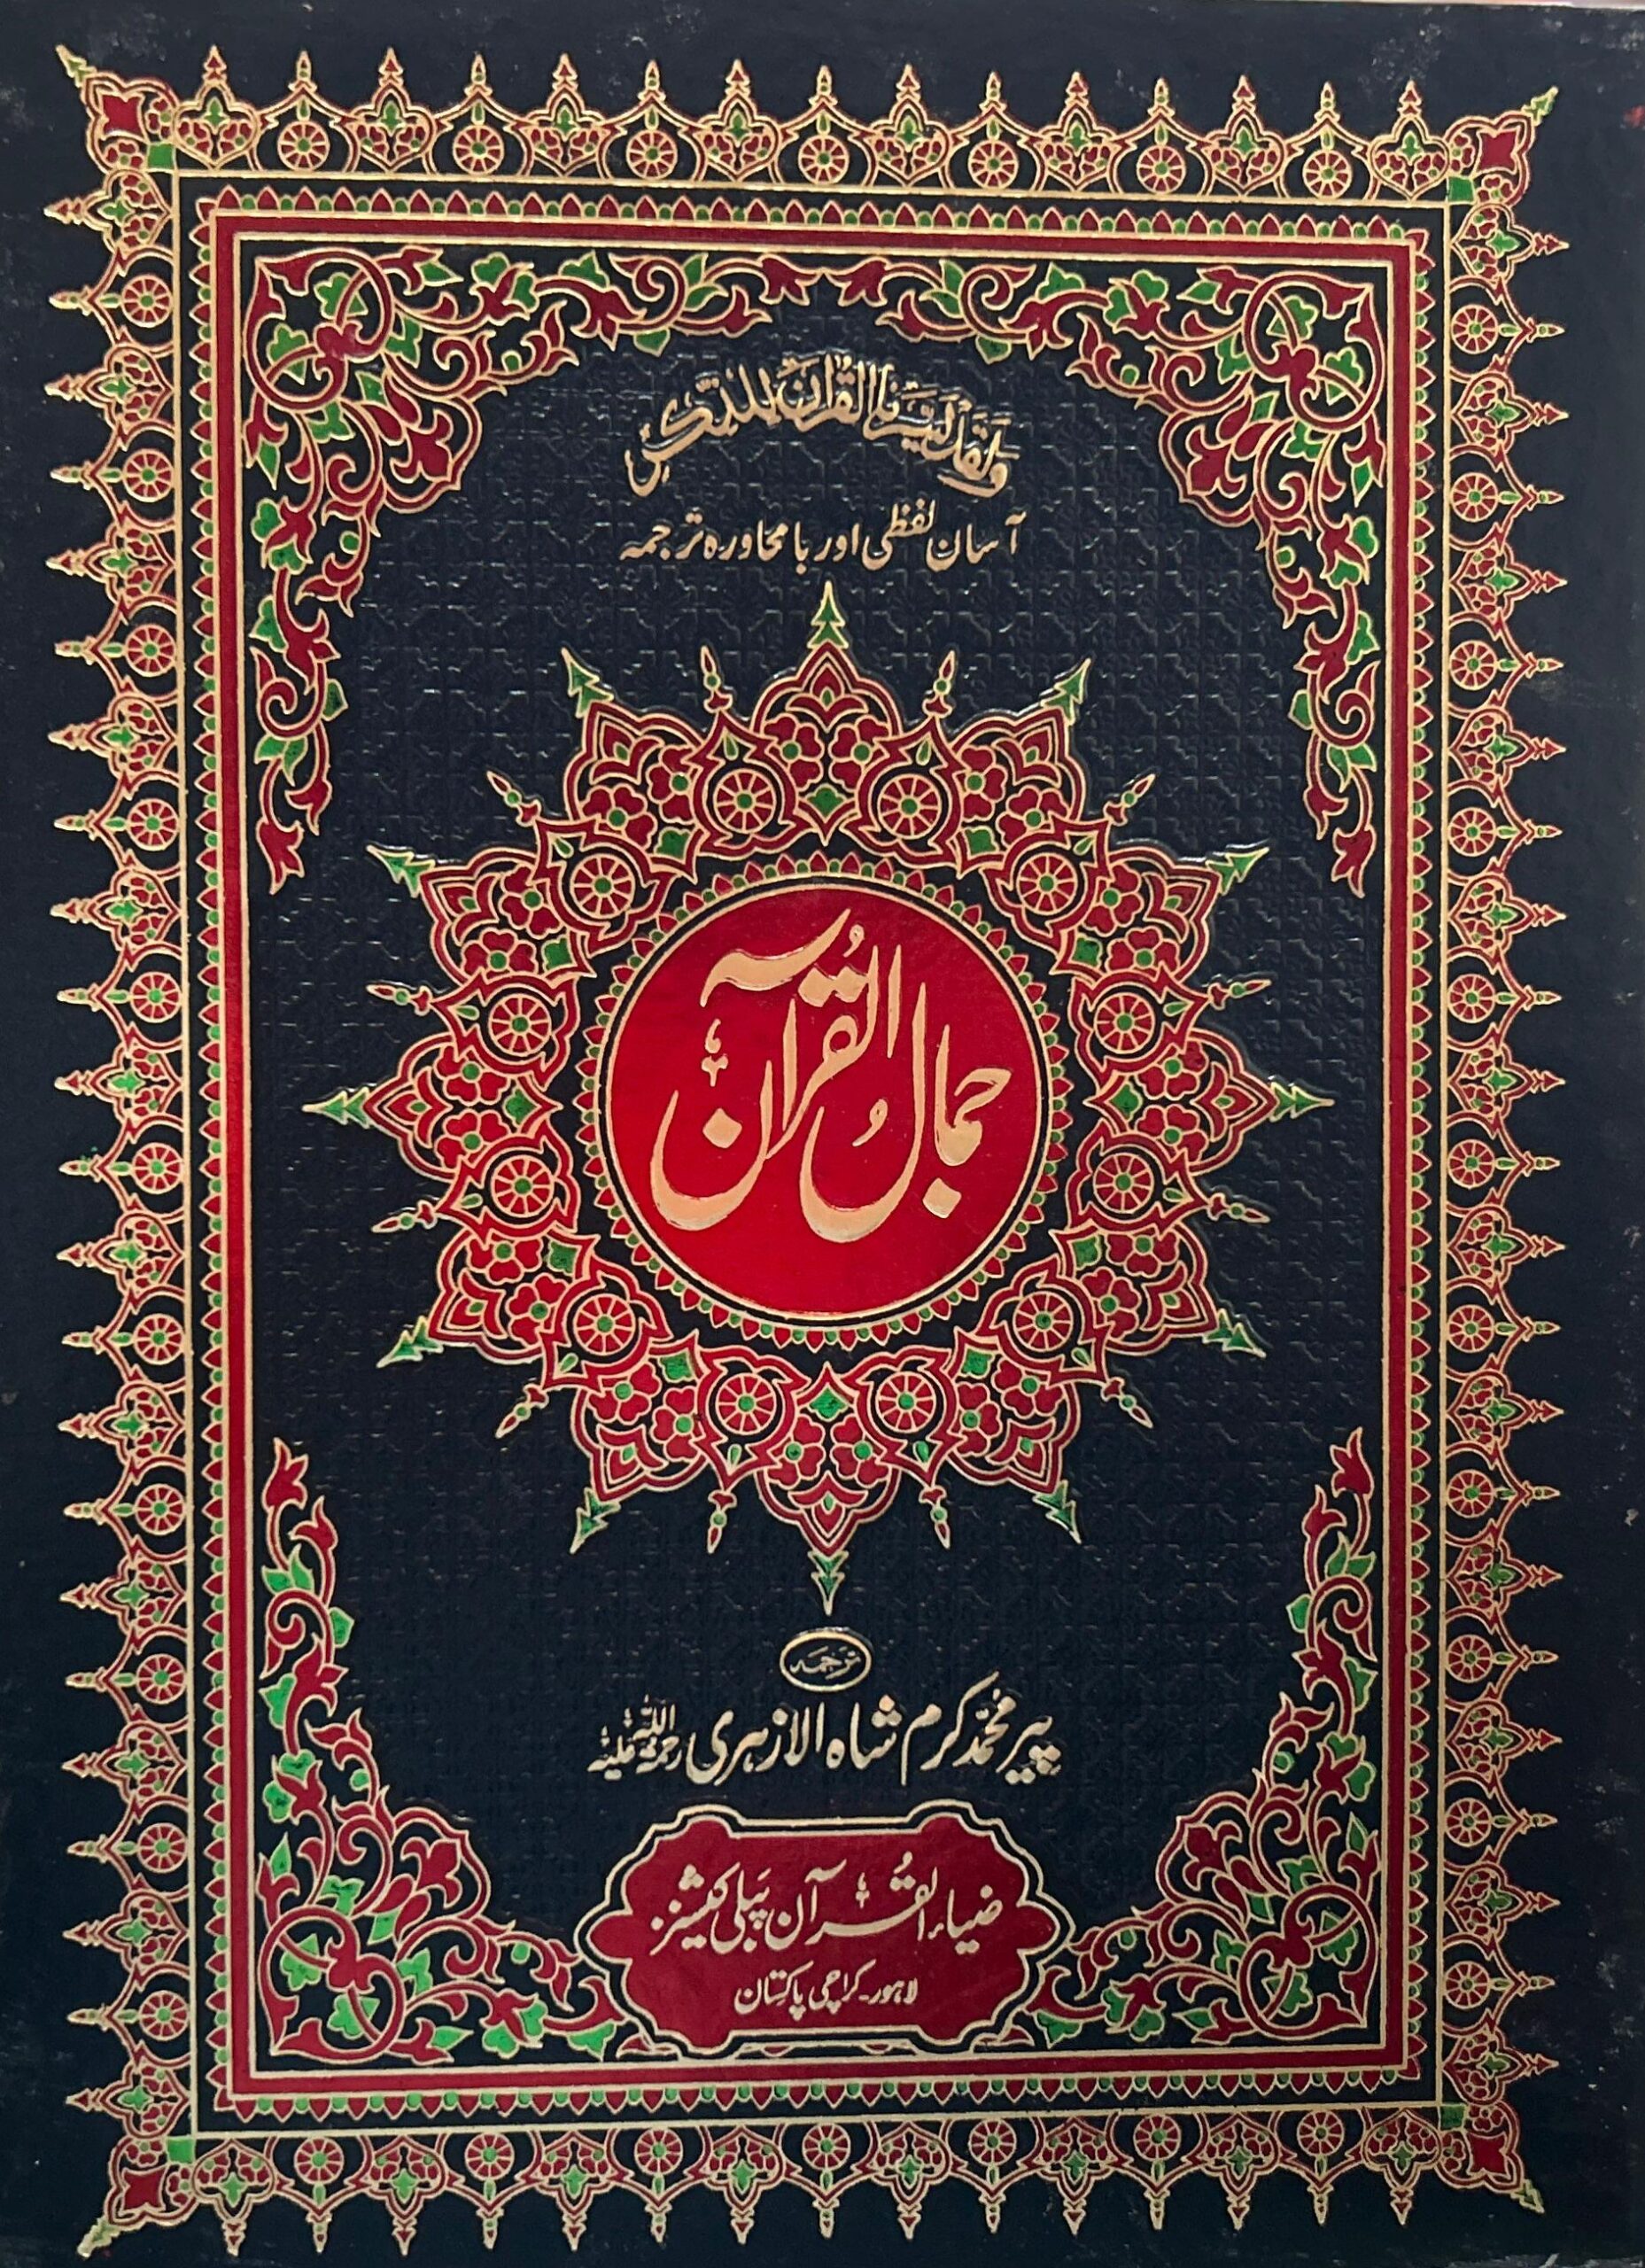 ولقد یسرنا القرآن للذکر
آسان لفظی اور با محاورہ ترجمہ
جمالُ القُرآن
ترجمہ
پیر محمد کرم شاہ الازہری رحمۃ اللہ علیہ
ضیاء القُرآن پبلی کیشنز
لاہور۔ کراچی پاکستان